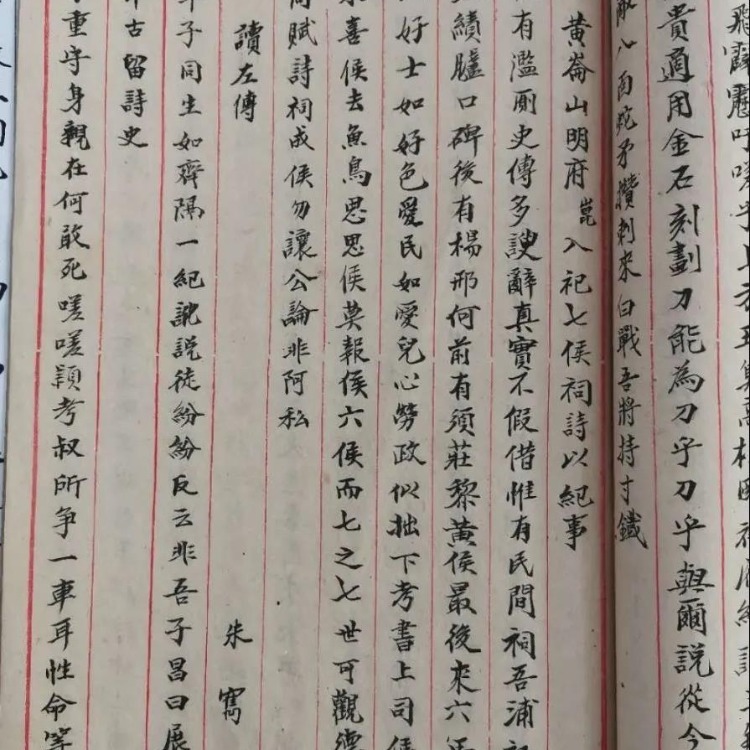 飛靂靂吁嗟乎
貴適用金石刻劃刀能為刀乎刀乎與爾說從今
八面蛇矛攢刺來白戰吾將持寸鐵
黃崙山明府崑入祀七侯祠詩以紀事
有濫厠史傳多諛辭真實不假借惟有民間祠吾浦
績臚口碑後有楊邢何前有須莊黎黃侯最後來六
好士如好色愛民如愛兒心勞政似拙下考書上司侯
喜侯去魚鳥思思侯莫報侯六侯而七之七世可觀德
賦詩祠成侯勿讓公論非阿私
讀左傳 朱寯
子同生如齊隔一紀訛說徒紛紛反云非吾子昌曰展
古留詩史
重守身親在何敢死嗟嗟潁考叔所争一車耳性命等